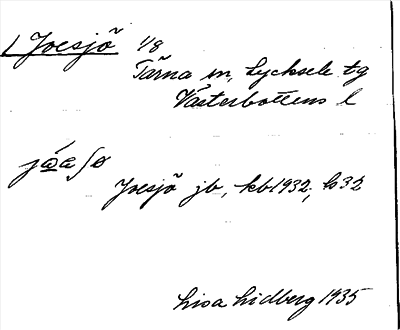 Joesjö 1/8
Tärna sn, Lycksele tg
Västerbottens l
Joesjö jb, kb 1932, ks 32
Lisa Lidberg 1935